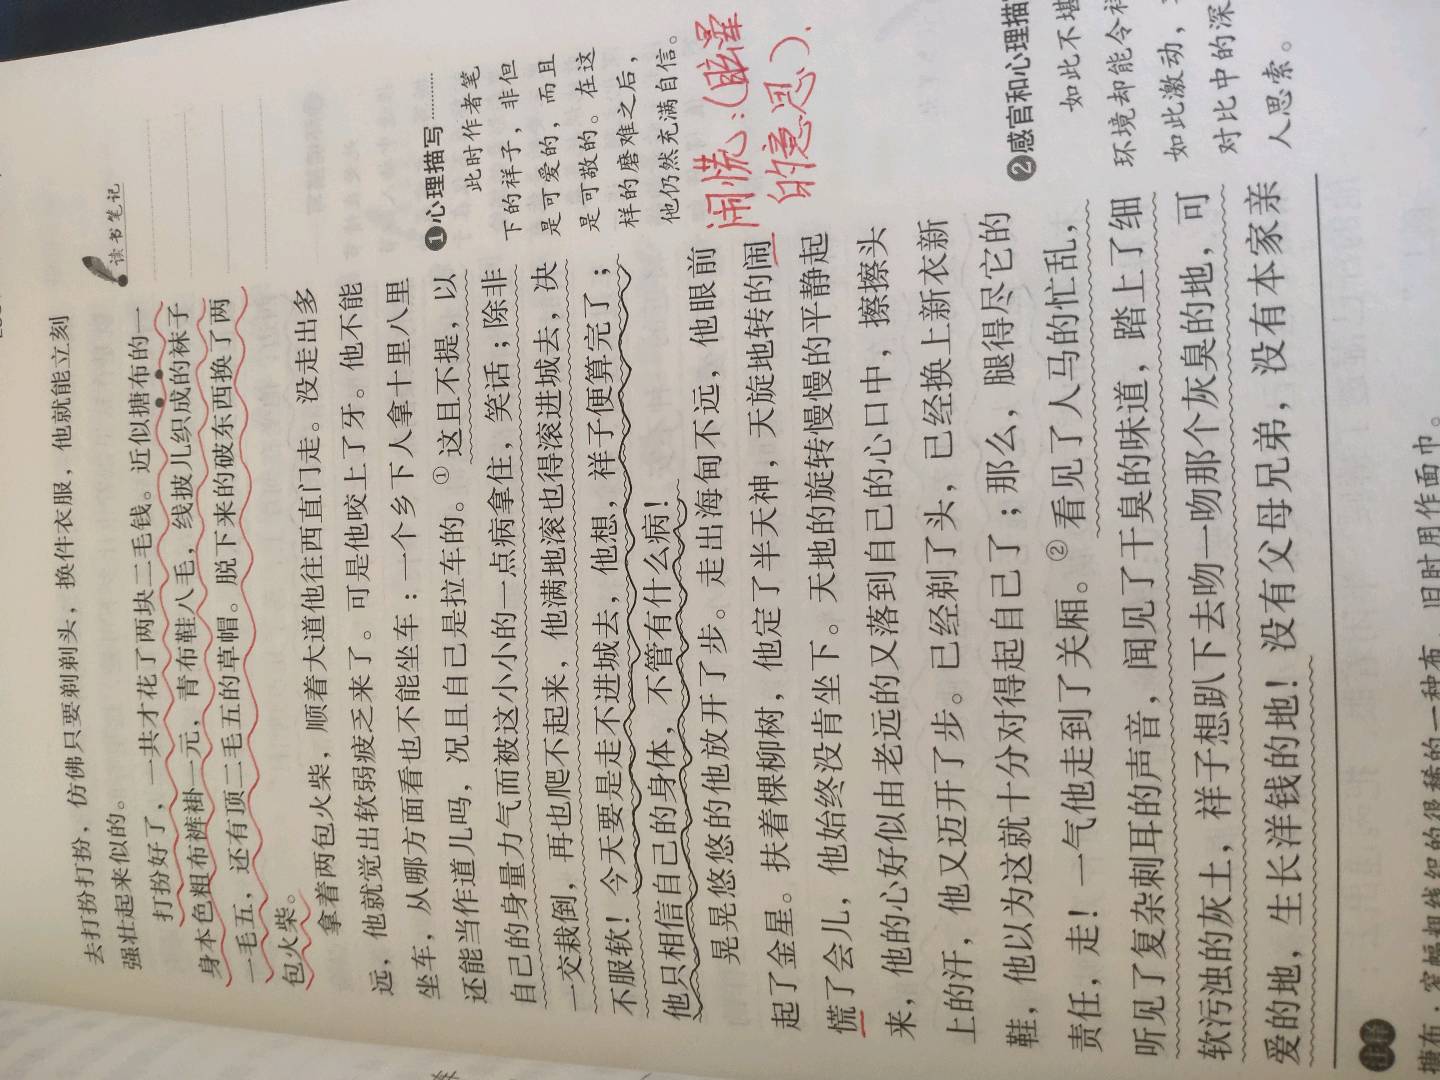 去打扮打扮，仿佛只要剃头，换件衣服，他就能立刻
强壮起来似的。
打扮好了，一共才花了两块二毛钱。近似搪布的一
身本色粗布裤褂一元，青布鞋八毛，线披儿织成的袜子
一毛五，还有顶二毛五的草帽。脱下来的破东西换了两
包火柴。
拿着两包火柴，顺着大道他往西直门走。没走出多
远，他就觉出软弱疲乏来了。可是他咬上了牙。他不能
坐车，从哪方面看也不能坐车：一个乡下人拿十里八里
还能当作道儿吗，况且自己是拉车的。①这且不提，以
自己的身量力气而被这小小的一点病拿住，笑话；除非
一交栽倒，再也爬不起来，他满地滚也得滚进城去，决
不服软！今天要是走不进城去，他想，祥子便算完了；
他只相信自己的身体，不管有什么病！
晃晃悠悠的他放开了步。走出海甸不远，他眼前
起了金星。扶着棵柳树，他定了半天神，天旋地转的闹
慌了会儿，他始终没肯坐下。天地的旋转慢慢的平静起
来，他的心好似由老远的又落到自己的心口中，擦擦头
上的汗，他又迈开了步。已经剃了头，已经换上新衣新
鞋，他以为这就十分对得起自己了；那么，腿得尽它的
责任，走！一气他走到了关厢。②看见了人马的忙乱，
听见了复杂刺耳的声音，闻见了干臭的味道，踏上了细
软污浊的灰土，祥子想趴下去吻一吻那个灰臭的地，可
爱的地，生长洋钱的地！没有父母兄弟，没有本家亲
读书笔记
❶心理描写
此时作者笔
下的祥子，非但
是可爱的，而且
是可敬的。在这
样的磨难之后，
他仍然充满自信。
闹慌：（眩晕
的意思）.
❷感官和心理描
如此不堪
环境却能令祥
如此激动，
对比中的深
人思索。
注释
搪布：窄幅粗线织的很稀的一种布，旧时用作面巾。